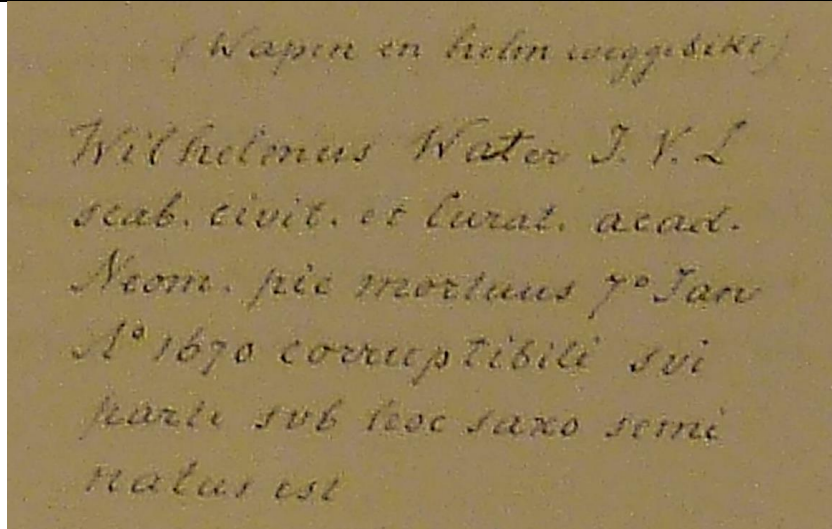 (Wapen en helm weggebikt)
Wilhelmus Water J. V. L
scab. civit. et Curat. acad.
Neom. pie mortuus 7° Jan
A° 1670 corruptibili svi
parte svb hoc saxo semi
natus est